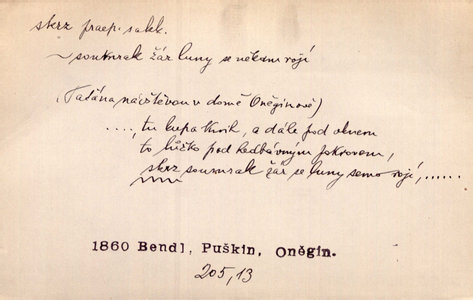 skrz praep. s akk.
~ soumrak žár luny se někam rojí
(Taťána návštěvou v domě Oněginově)
...., tu kupa knih, a dále pod oknem
to lůžko pod hedbávným pokrovem,
skrz soumrak žár se luny semo rojí,......
1860 Bendl, Puškin, Oněgin.
205,13